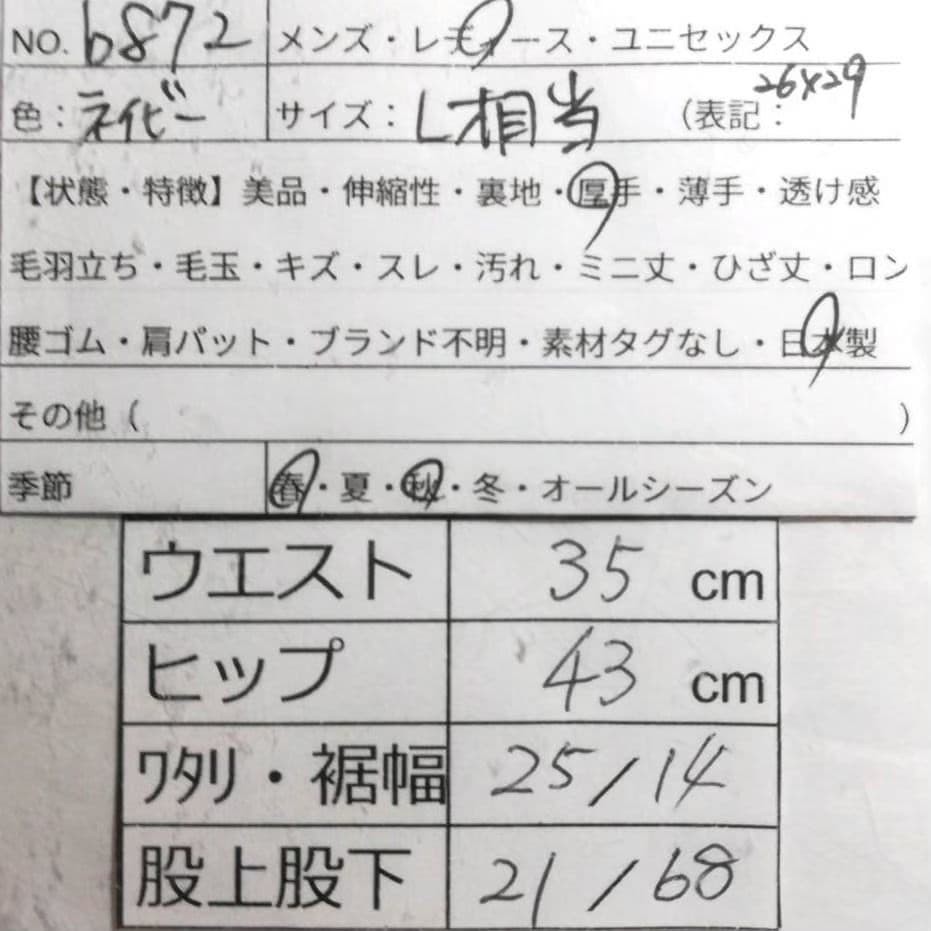 NO. 6872 メンズ・レディース・ユニセックス
色：ネイビー サイズ：L相当 （表記：26×29
【状態・特徴】美品・伸縮性・裏地・厚手・薄手・透け感
毛羽立ち・毛玉・キズ・スレ・汚れ・ミニ丈・ひざ丈・ロン
腰ゴム・肩パット・ブランド不明・素材タグなし・日本製
その他（ ）
季節 春・夏・秋・冬・オールシーズン
ウエスト 35 cm
ヒップ 43 cm
ﾜﾀﾘ・裾幅 25/14
股上股下 21/68